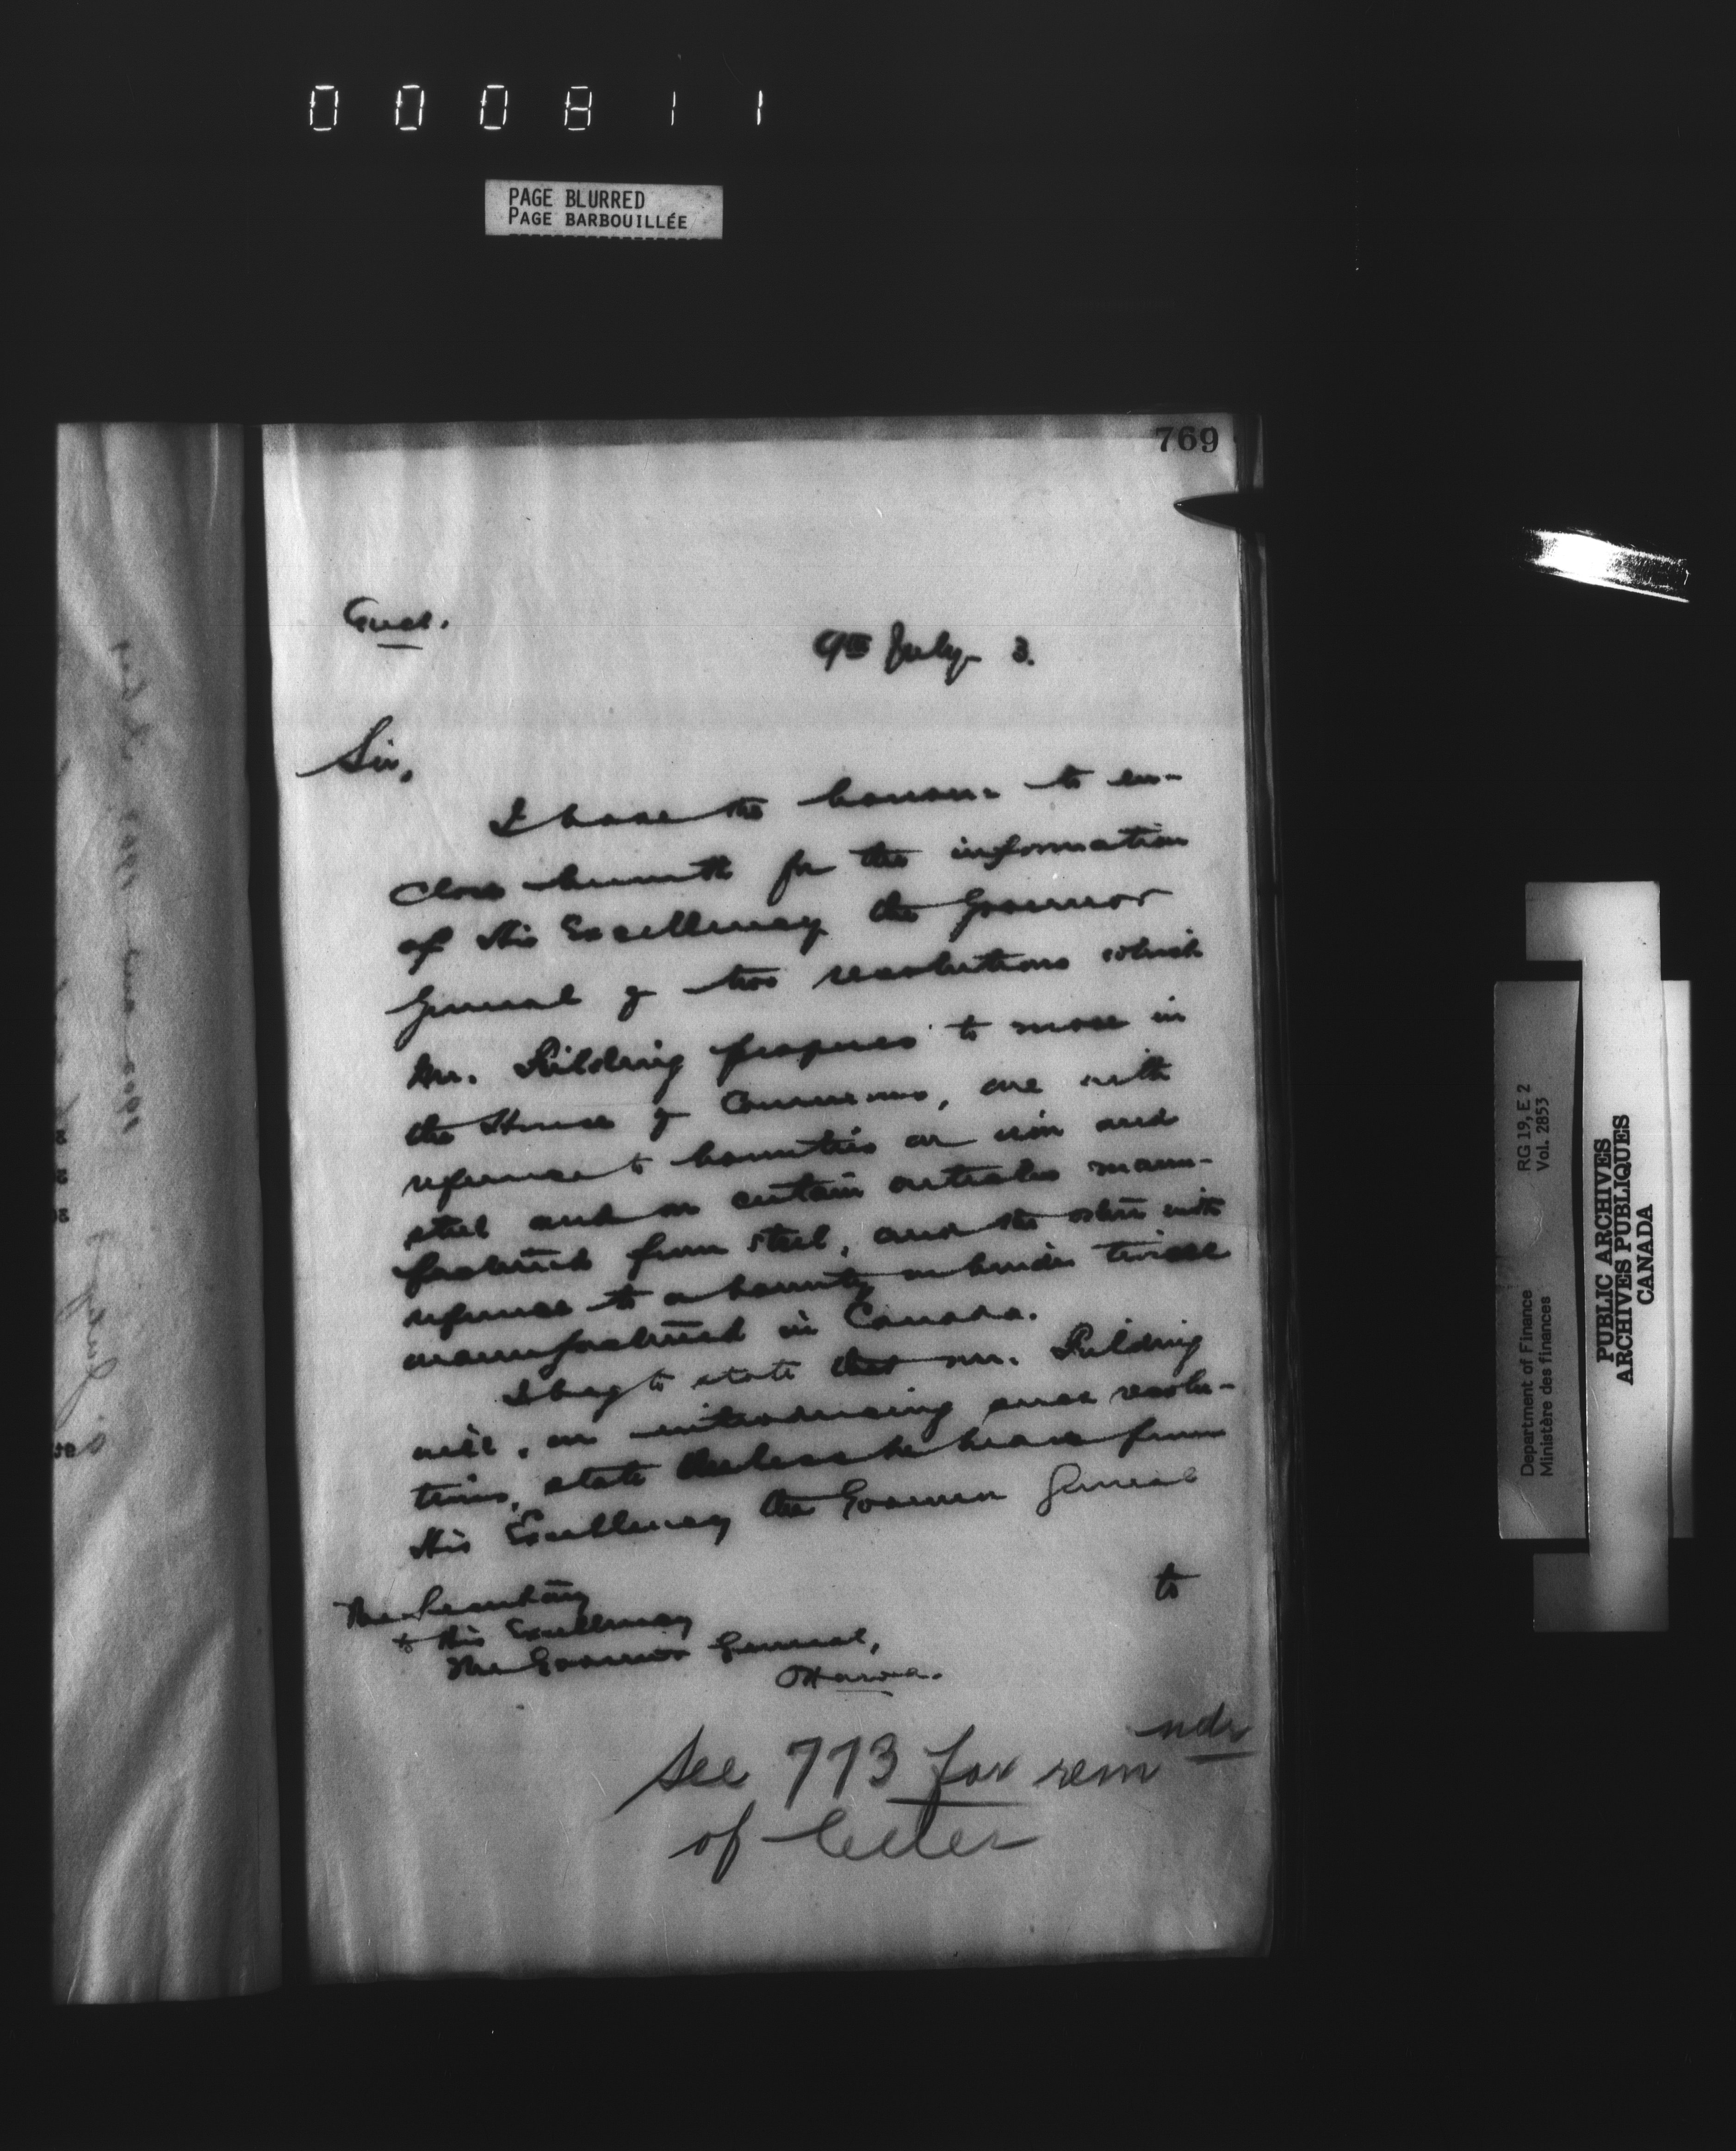 000811
PAGE BLURRED
PAGE BARBOUILLÉE
769
Encl.
9th July 3.
Sir,
I have the honour to en-
close herewith for the information
of His Excellency the Governor
General of two resolutions which
Mr. Fielding proposes to move in
the House of Commons, one with
reference to bounties on iron and
steel and on certain articles manu-
factured from steel, and the other with
reference to a bounty on binder twine
manufactured in Canada.
I beg to state that Mr. Fielding
will, on introducing these resolu-
tions, state unless he hears from
His Excellency the Governor General
to
The Secretary
to His Excellency
The Governor General,
Ottawa.
See 773 for remndr
of letter
RG 19, E 2
Vol. 2853
Department of Finance
Ministère des finances
PUBLIC ARCHIVES
ARCHIVES PUBLIQUES
CANADA